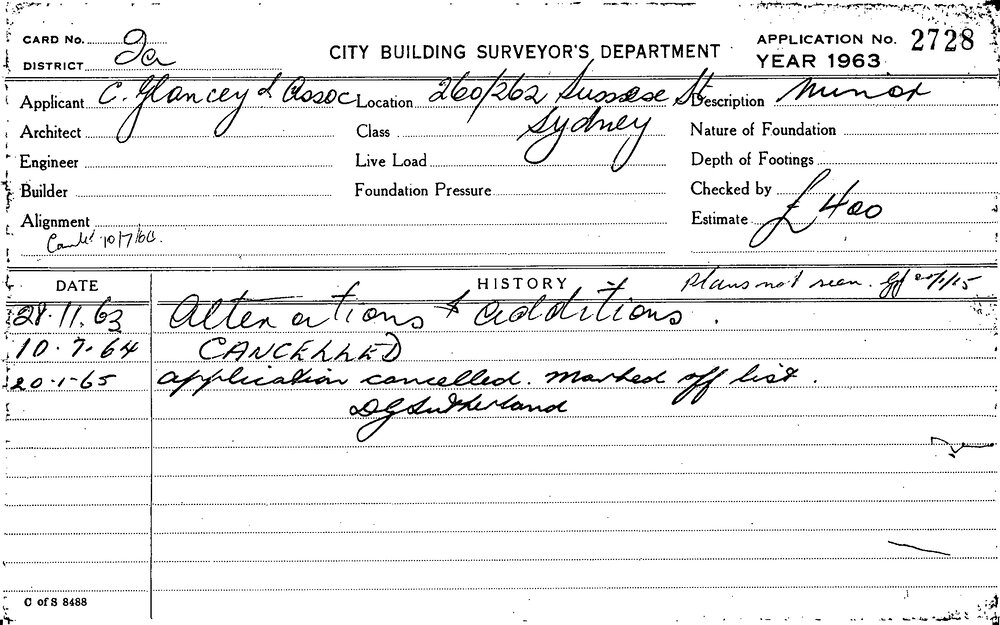 CARD No. 2a
DISTRICT
CITY BUILDING SURVEYOR'S DEPARTMENT
APPLICATION No. 2728
YEAR 1963
Applicant C. Glancey & Assoc Location 260/262 Sussex St Description Minor
Architect Class Sydney Nature of Foundation
Engineer Live Load Depth of Footings
Builder Foundation Pressure Checked by
Alignment Estimate £400
10/7/64.
DATE HISTORY Plans not seen.
28.11.63 Alterations & additions.
10.7.64 CANCELLED
20-1-65 application cancelled. Marked off list.
DG Sutherland
C of S 8488